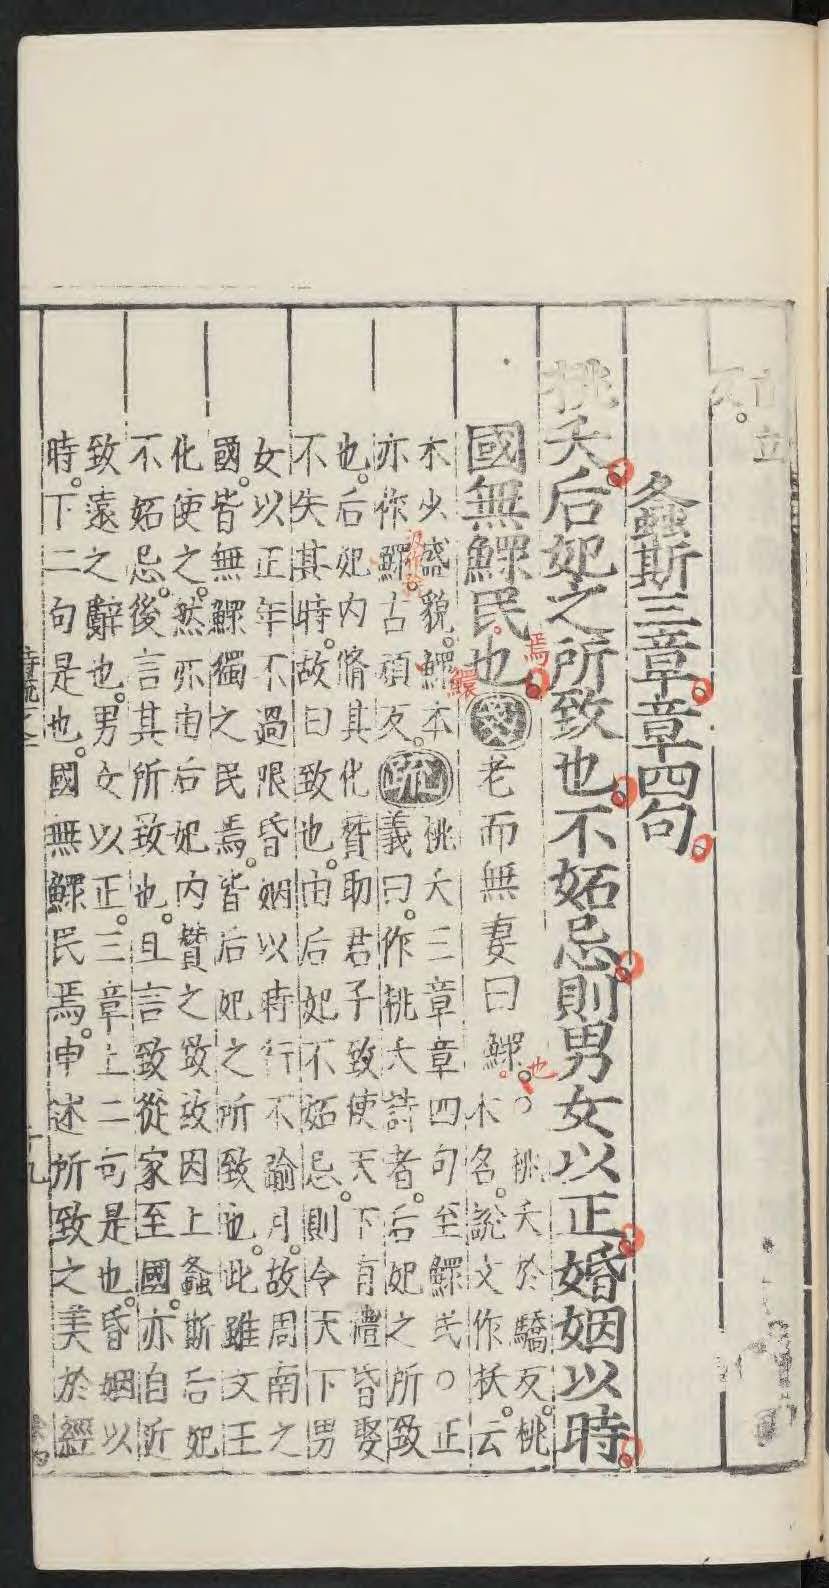 反
螽斯三章章四句
桃夭后妃之所致也不妬忌則男女以正婚姻以時
國無鰥民也
焉
箋
老而無妻曰鰥
也
○桃夭於驕反桃
木名說文作枖云
木少盛貌鰥本
亦作鱞古頑反
鱞
疏
桃夭三章章四句至鰥民○正
義曰作桃夭詩者后妃之所致
也后妃內脩其化贊助君子致使天下有禮昏娶
不失其時故曰致也由后妃不妬忌則令天下男
女以正年不過限昏姻以時行不踰月故周南之
國皆無鰥獨之民焉皆后妃之所致也此雖文王
化使之然亦由后妃內贊之致故因上螽斯后妃
不妬忌後言其所致也且言致從家至國亦自近
致遠之辭也男女以正三章上二句是也昏姻以
時下二句是也國無鰥民焉申述所致之美於經
十九